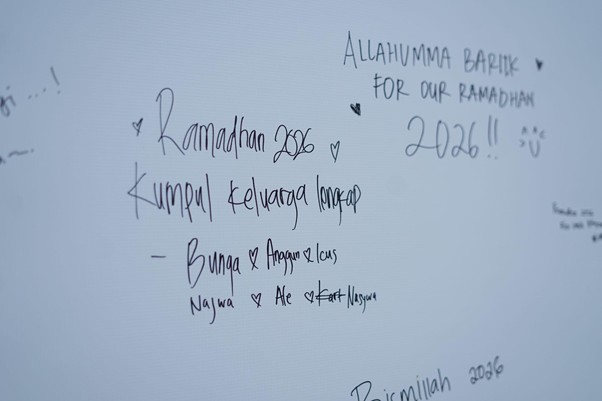 ALLAHUMMA BARIIK
FOR OUR RAMADHAN
2026!!
Ramadhan 2026
Kumpul Keluarga lengkap
– Bunga ♡ Anggun ♡ Icus
Najwa ♡ Ale ♡ Nasywa
Bismillah 2026